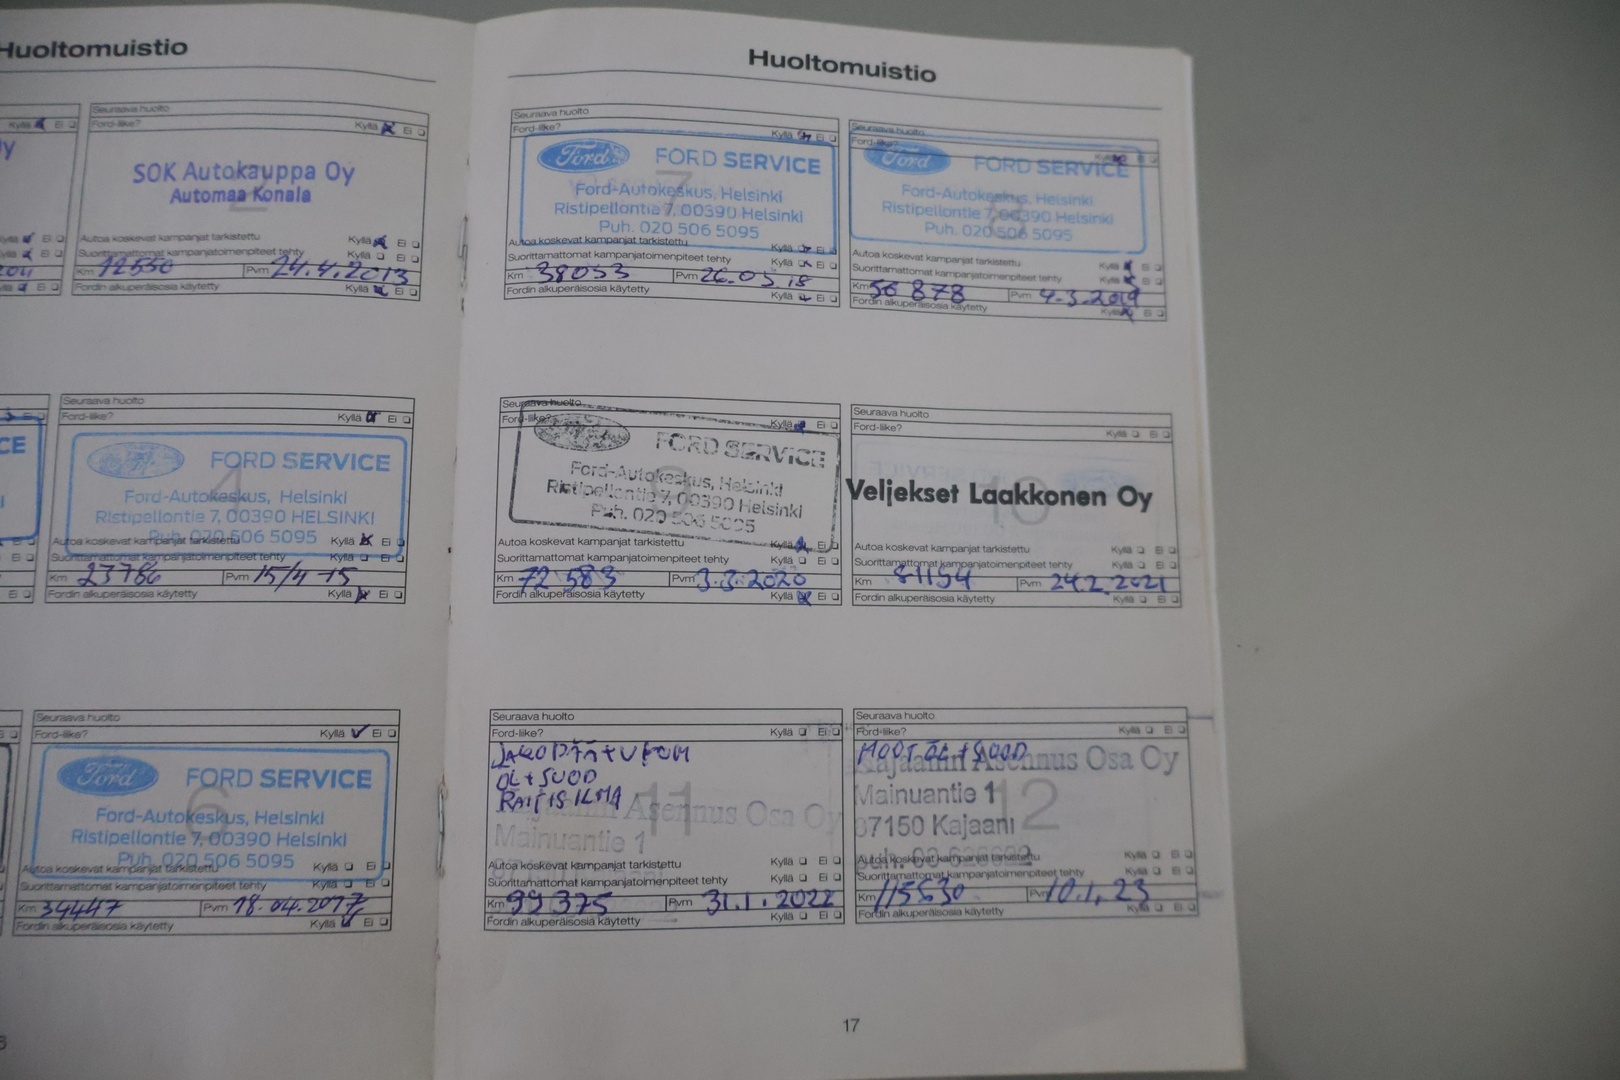 Huoltomuistio
Kyllä Ei
oy
Kyllä Ei
Seuraava huolto
Ford-liike?
Kyllä Ei
SOK Autokauppa Oy
Automaa Konala
2
Autoa koskevat kampanjat tarkistettu Kyllä Ei
Suorittamattomat kampanjatoimenpiteet tehty Kyllä Ei
Km 12550 Pvm 24.4.2013
Fordin alkuperäisosia käytetty Kyllä Ei
CE
Seuraava huolto
Ford-liike? Kyllä Ei
FORD SERVICE
4
Ford-Autokeskus, Helsinki
Ristipellontie 7, 00390 HELSINKI
Puh. 020 506 5095
Autoa koskevat kampanjat tarkistettu Kyllä Ei
Suorittamattomat kampanjatoimenpiteet tehty Kyllä Ei
Km 23786 Pvm 15/4-15
Fordin alkuperäisosia käytetty Kyllä Ei
Seuraava huolto
Ford-liike? Kyllä Ei
Ford FORD SERVICE
6
Ford-Autokeskus, Helsinki
Ristipellontie 7, 00390 Helsinki
Puh. 020 506 5095
Autoa koskevat kampanjat tarkistettu Kyllä Ei
Suorittamattomat kampanjatoimenpiteet tehty Kyllä Ei
Km 34447 Pvm 18.04.2017
Fordin alkuperäisosia käytetty Kyllä Ei
Huoltomuistio
Seuraava huolto
Ford-liike? Kyllä Ei
Ford FORD SERVICE
7
Ford-Autokeskus, Helsinki
Ristipellontie 7, 00390 Helsinki
Puh. 020 506 5095
Autoa koskevat kampanjat tarkistettu Kyllä Ei
Suorittamattomat kampanjatoimenpiteet tehty Kyllä Ei
Km 38053 Pvm 26.03.18
Fordin alkuperäisosia käytetty Kyllä Ei
Seuraava huolto
Ford-liike? Kyllä Ei
Ford FORD SERVICE
Ford-Autokeskus, Helsinki
Ristipellontie 7, 00390 Helsinki
Puh. 020 506 5095
Autoa koskevat kampanjat tarkistettu
Suorittamattomat kampanjatoimenpiteet tehty Kyllä Ei
Km 56 878 Pvm 4.3.2019
Fordin alkuperäisosia käytetty Kyllä Ei
Seuraava huolto
Ford-liike? Kyllä Ei
FORD SERVICE
9
Ford-Autokeskus, Helsinki
Ristipellontie 7, 00390 Helsinki
Puh. 020 506 5095
Autoa koskevat kampanjat tarkistettu Kyllä Ei
Suorittamattomat kampanjatoimenpiteet tehty Kyllä Ei
Km 72 583 Pvm 3.3.2020
Fordin alkuperäisosia käytetty Kyllä Ei
Seuraava huolto
Ford-liike? Kyllä Ei
Veljekset Laakkonen Oy
10
Autoa koskevat kampanjat tarkistettu Kyllä Ei
Suorittamattomat kampanjatoimenpiteet tehty Kyllä Ei
Km 81154 Pvm 24.2.2021
Fordin alkuperäisosia käytetty Kyllä Ei
Seuraava huolto
Ford-liike? Kyllä Ei
ÖL + SUOD
RAITIS ILMA
11
Kajaanin Asennus Osa Oy
Mainuantie 1
Autoa koskevat kampanjat tarkistettu Kyllä Ei
Suorittamattomat kampanjatoimenpiteet tehty Kyllä Ei
Km 99 375 Pvm 31.1.2022
Fordin alkuperäisosia käytetty Kyllä Ei
Seuraava huolto
Ford-liike? Kyllä Ei
MOOT ÖL + SUOD
Kajaanin Asennus Osa Oy
Mainuantie 1
12
87150 Kajaani
Autoa koskevat kampanjat tarkistettu Kyllä Ei
Suorittamattomat kampanjatoimenpiteet tehty Kyllä Ei
Km 115530 Pvm 10.1.23
Fordin alkuperäisosia käytetty Kyllä Ei
17